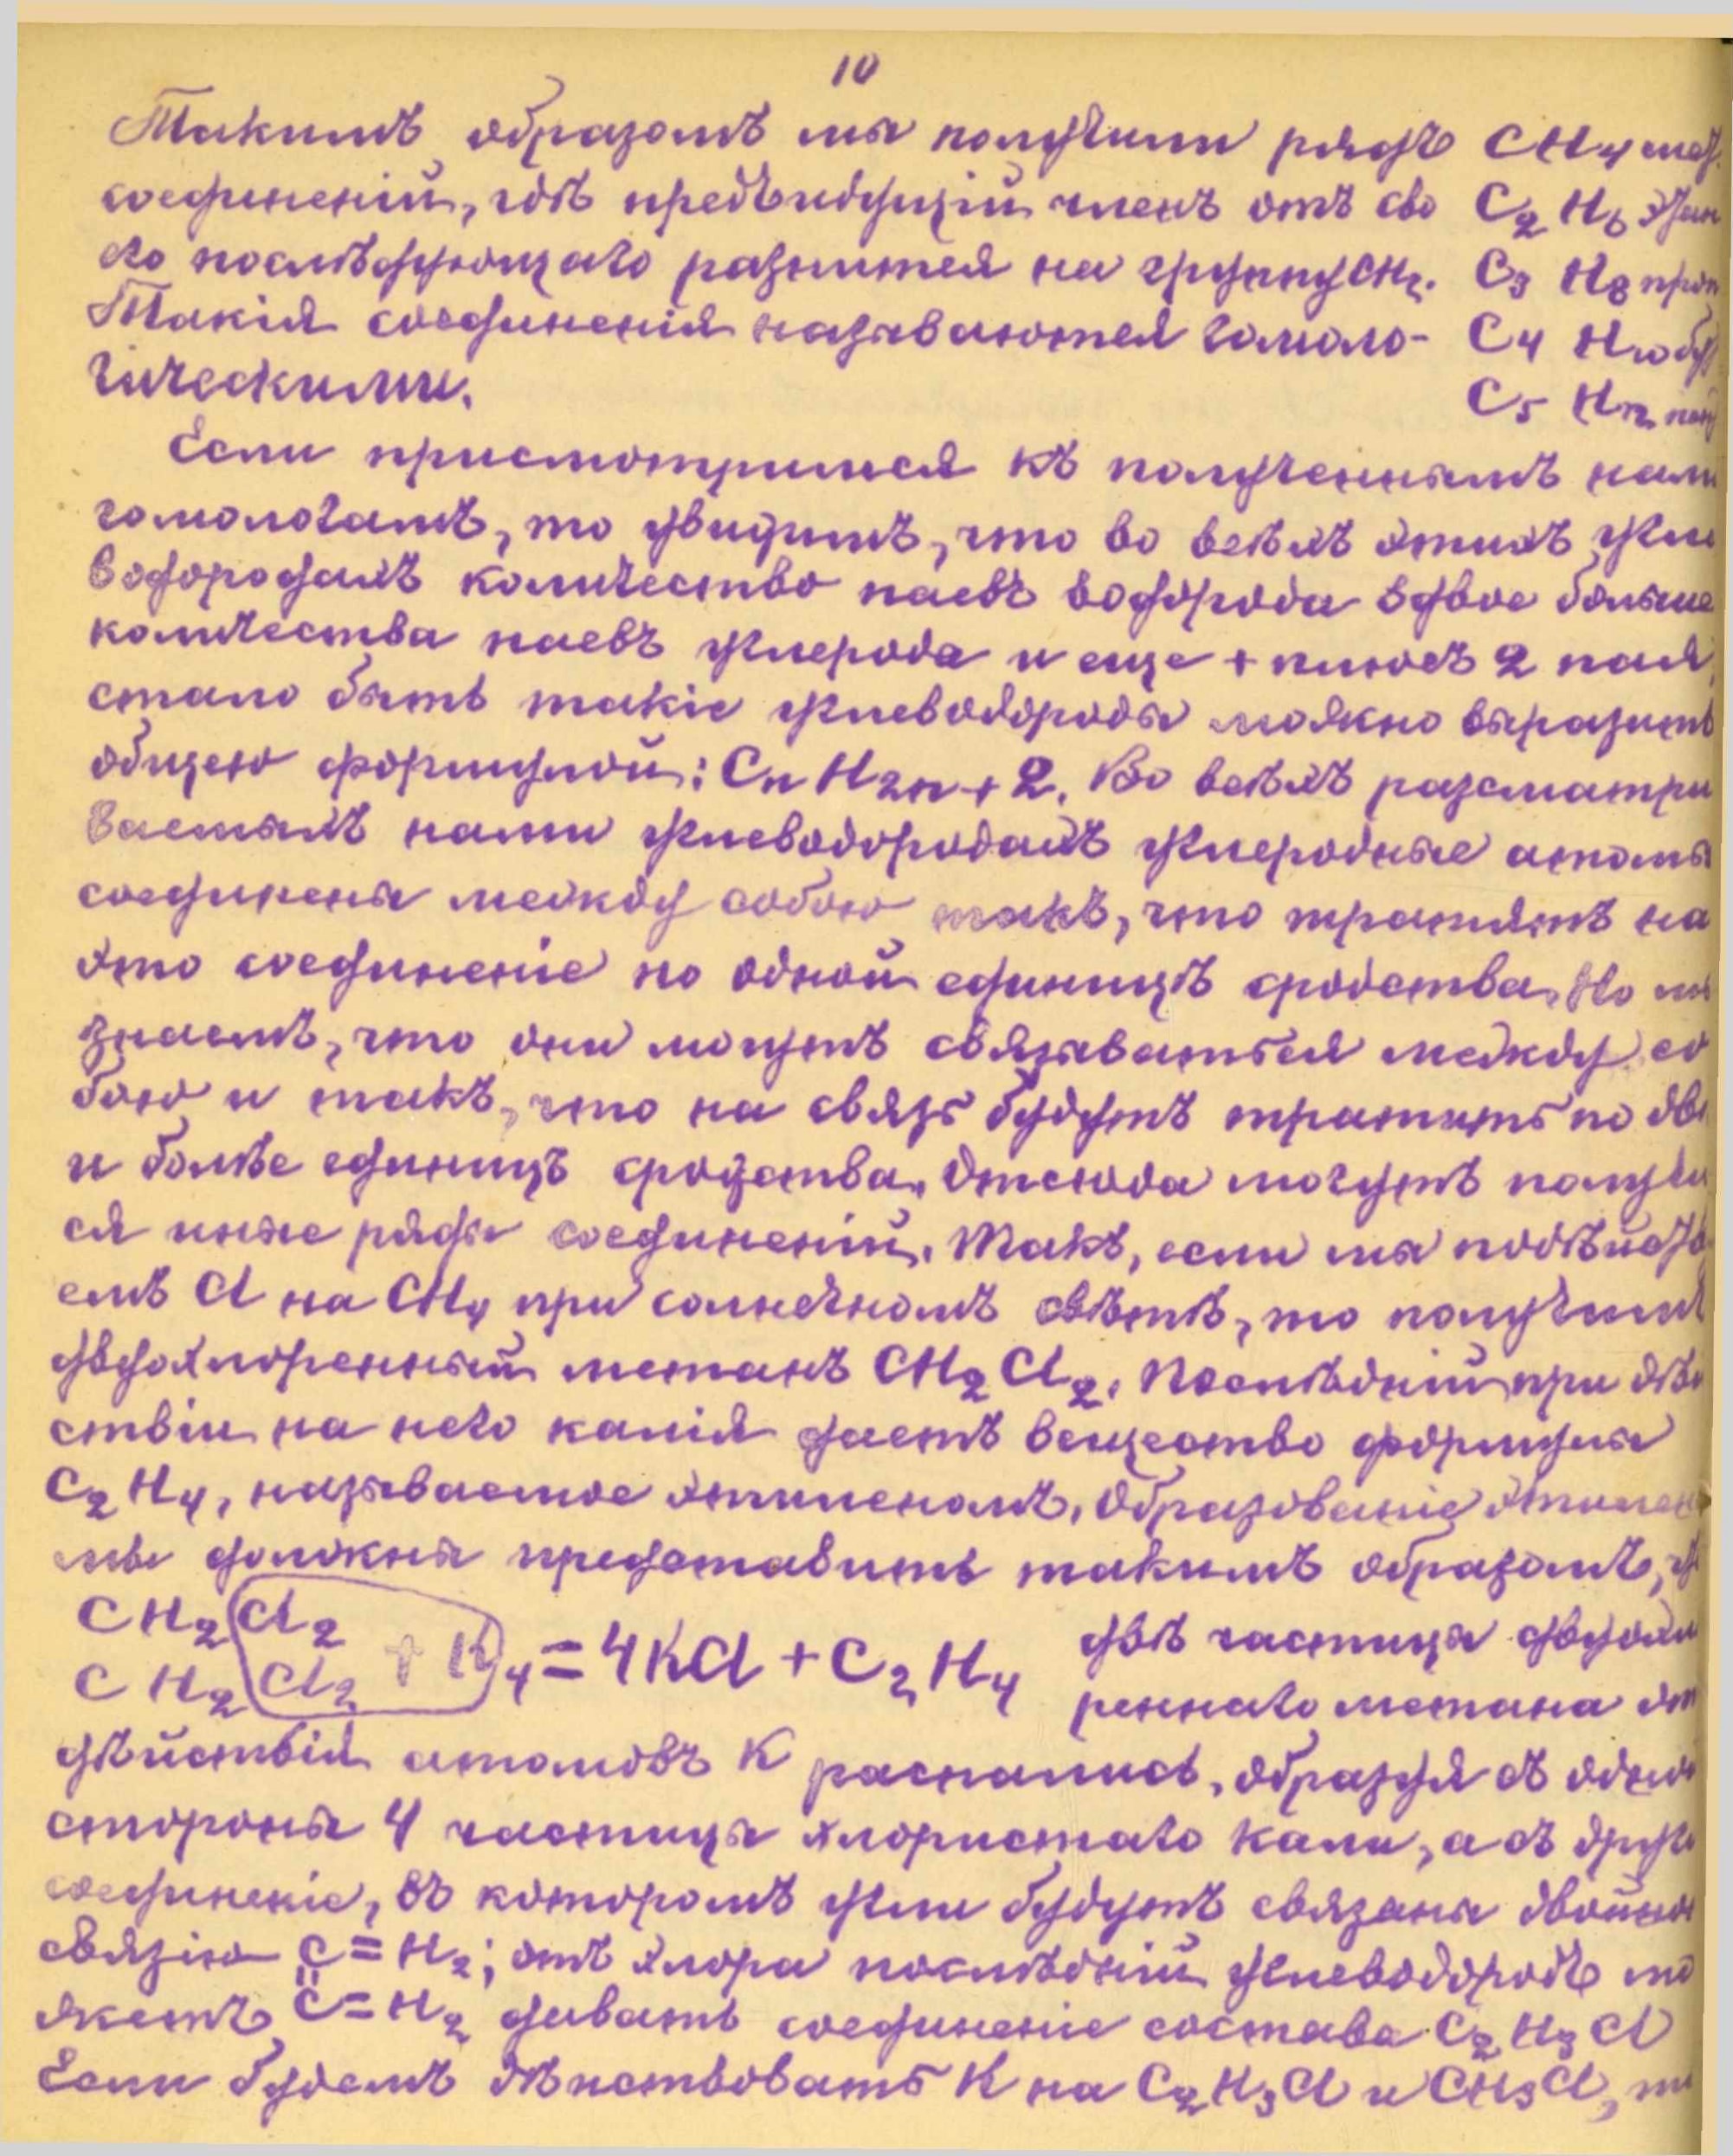 10
Такимъ образомъ мы получили рядъ CH4 мет.
соединеній, гдѣ предъидущій членъ отъ сво C2 H6 этан
его послѣдующаго разнится на группу CH2. C3 H8 проп
Такія соединенія называются гомоло- C4 H10 бу
гическими. C5 H12 пен
Если присмотримся къ полученнымъ нами
гомологамъ, то увидимъ, что во всѣхъ этихъ угле
водородахъ количество паевъ водорода вдвое больше
количества паевъ углерода и еще + плюсъ 2 пая,
стало быть такіе углеводороды можно выразить
общею формулой: Cn H2n+2. Во всѣхъ разсматри
ваемыхъ нами углеводородахъ углеродные атомы
соединены между собою такъ, что тратятъ на
это соединеніе по одной единицѣ сродства. Но мы
знаемъ, что они могутъ связываться между со
бою и такъ, что на связь будутъ тратить по двѣ
и болѣе единицъ сродства. Отсюда могутъ получи
ся иные ряды соединеній. Такъ, если мы подѣйству
емъ Cl на CH4 при солнечномъ свѣтѣ, то получимъ
двухлоренный метанъ CH2 Cl2. Послѣдній при дѣй
ствіи на него калія даетъ вещество формулы
C2 H4, называемое этиленомъ. Образованіе этилена
мы должны представить такимъ образомъ,
CH2 Cl2 двѣ частицы двухло
+ K4 = 4KCl + C2 H4
CH2 Cl2 реннаго метана от
дѣйствія атомовъ K распались, образуя съ одной
стороны 4 частицы хлористаго кали, а съ друго
соединеніе, въ которомъ угли будутъ связаны двойной
связію C = H2; отъ хлора послѣдній углеводородъ мо
жетъ C = H2 давать соединеніе состава C2 H3 Cl
Если будемъ дѣйствовать K на C2 H3 Cl и CH3 Cl, то